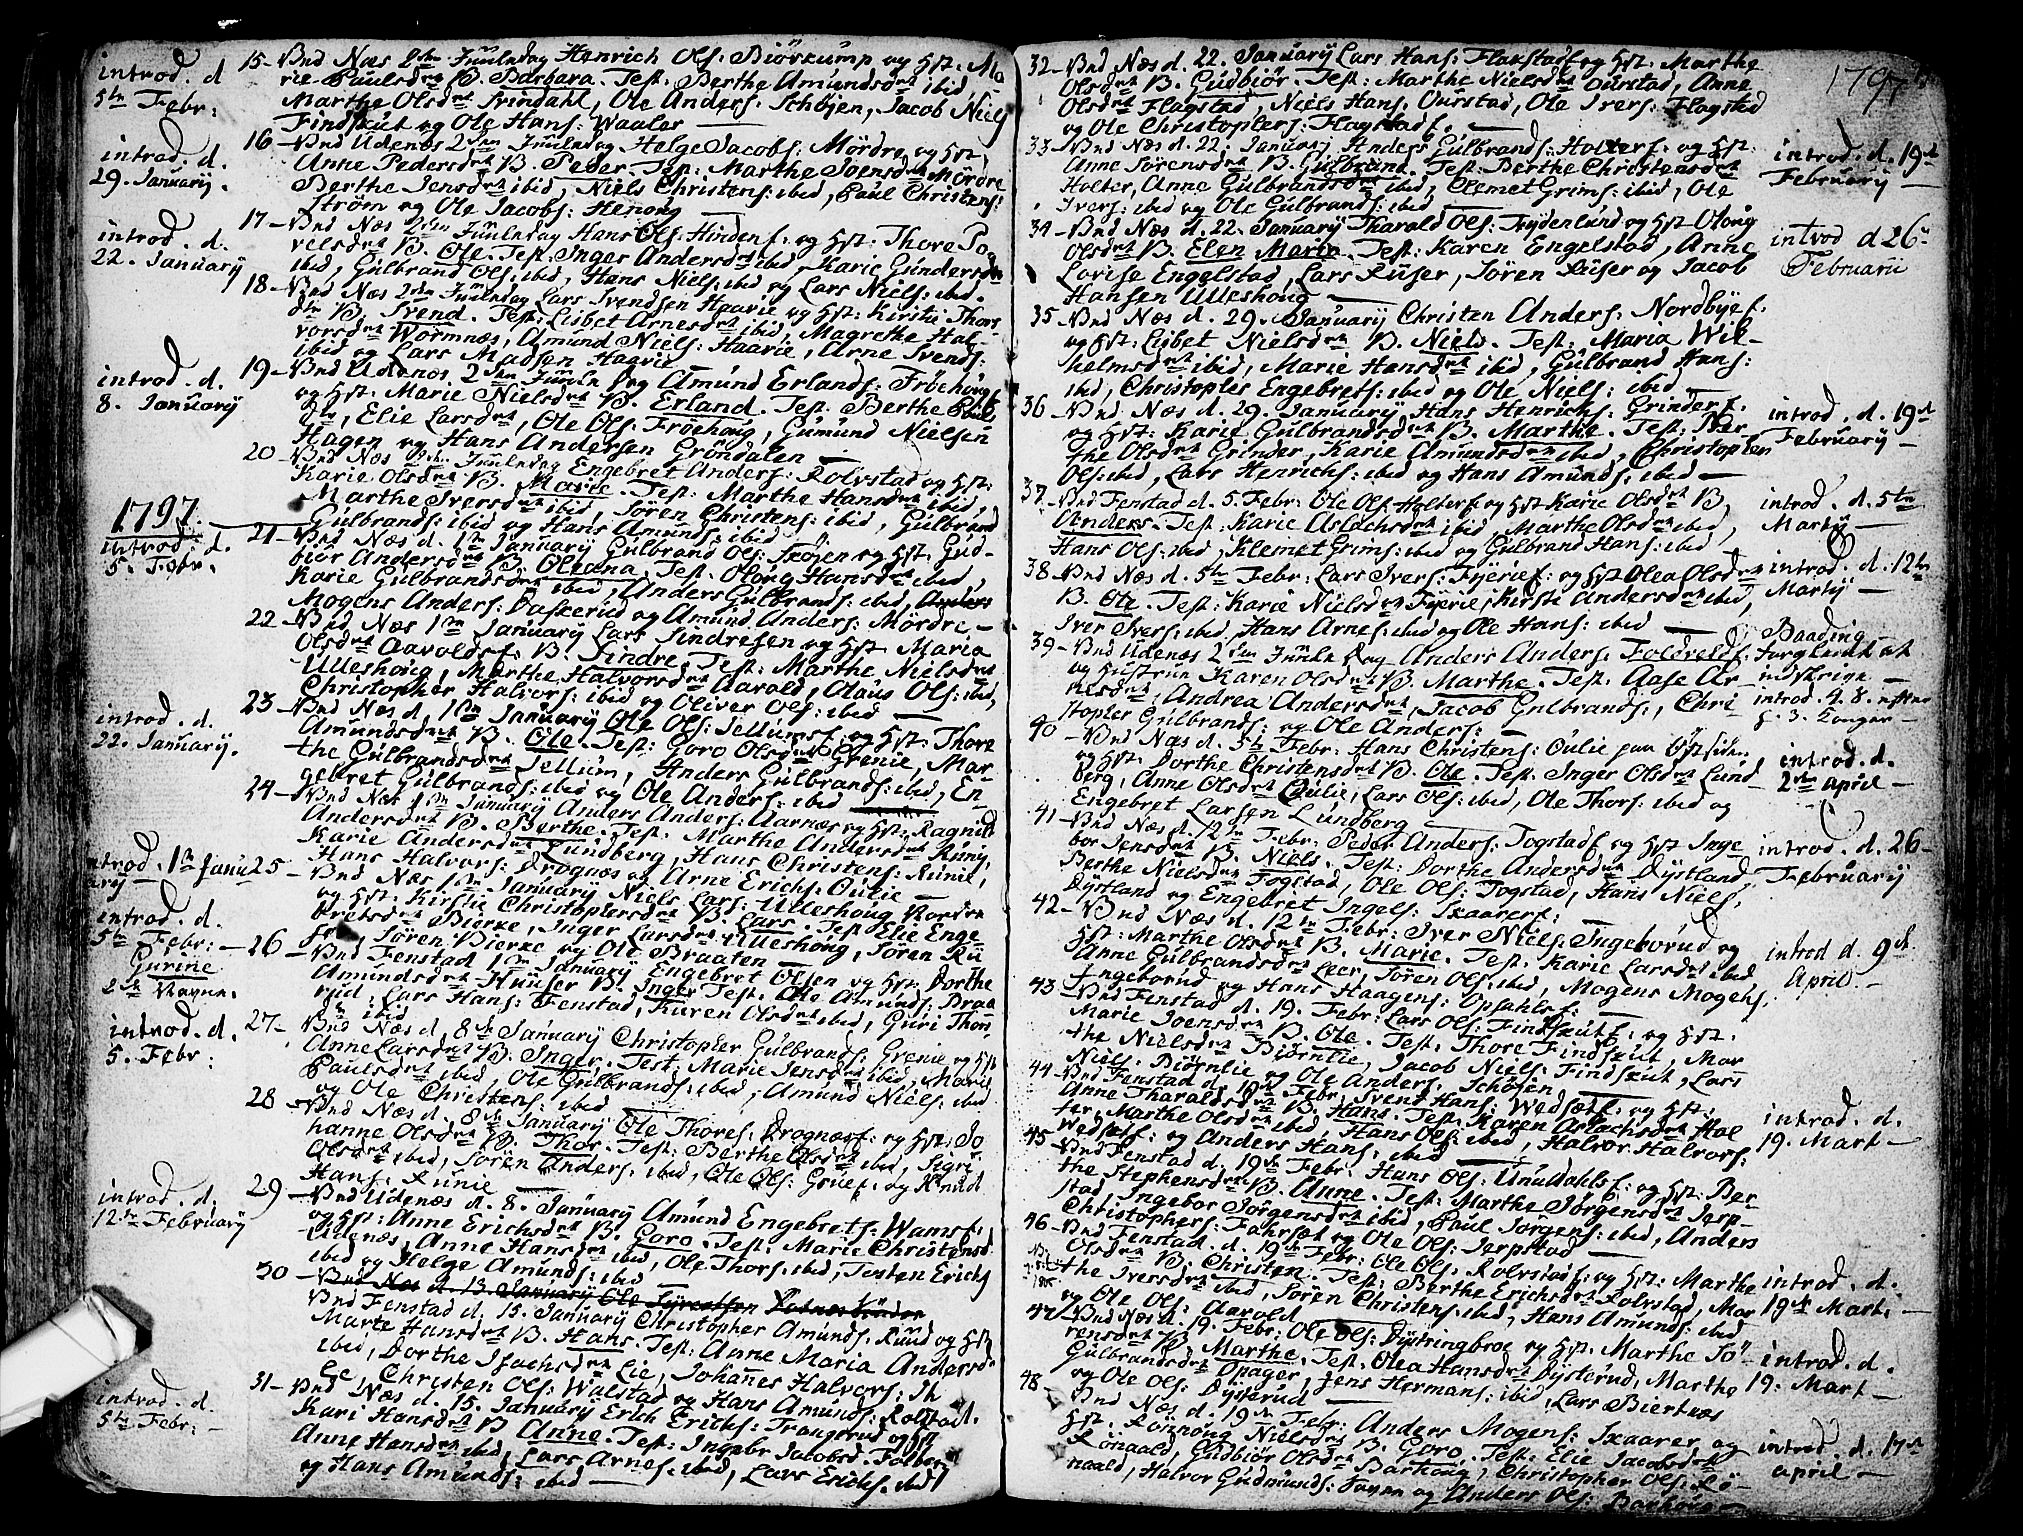 introd. d
5te Febr:
15- Bnd Næs 2den Juuledag Henrich Ols: Biörkump og Hst: Ma
rie Paulsdttr B. Barbara. Test: Berthe Amundsdttr ibid
Marthe Olsdttr Svindahl, Ole Anders: Schöjen, Jacob Niels
Findskut og Ole Hans: Waaler
introd. d.
29. January.
16- Bnd Udenæs 2den Juuledag Helge Jacobs: Mördre og Hst:
Anne Pedersdttr B. Peder. Test: Marthe Joensdttr Mördre
Berthe Jensdttr ibid, Niels Christens: ibid, Paul Christens:
Ström og Ole Jacobs: Henong
introd. d.
22. January
17- Bnd Næs 2den Juuledag Hans Ols: Hirdenf. og Hst: Thore Po
velsdttr B. Ole. Test: Inger Andersdttr ibid, Karie Gundersdttr
ibid, Gulbrand Ols: ibid, Hans Niels: ibid og Lars Niels: ibid.
18- Bnd Næs 2den Juuledag Lars Svendsen Haarie og Hst: Kirsti Thors
dtr B. Svend. Test: Lisbet Arnesdttr ibid, Magrethe Hal-
vorsdttr Wormnæs, Amund Niels: Haarie, Arne Svends:
ibid og Lars Madsen Haarie
introd. d.
8. January
19- Bnd Udenæs 2den Juule Dag Amund Erlands: Fröehoug
og Hst: Marie Nielsdttr B. Erland. Test: Berthe
Elie Larsdttr, Ole Ols: Fröehoug, Gumund Nielsen
Hagen og Hans Andersen Gröndalen
20- Bnd Næs 2den Juuledag Engebret Anders: Rolvstad og Hst:
Karie Olsdttr B. Marie. Test: Marthe Hansdttr ibid,
Marthe Iversdttr ibid, Sören Christens: ibid, Gulbrand
Gulbrands: ibid og Hans Amunds: ibid
1797.
introd. d.
5. Febr.
21- Bnd Næs d. 1te January Gulbrand Ols: Sköjen og Hst: Gud-
biör Andersdttr B. Oleana. Test: Oloug Hansdttr ibid,
Karie Gulbrandsdttr ibid, Anders Gulbrands: ibid, Anders
Mogens Anders: Daskerud og Amund Anders: Mördre-
22- Bnd Næs 1te January Lars Sindresen og Hst: Maria
Olsdttr Aaroldf: B. Sindre. Test: Marthe Nielsdttr
Ulleshoug, Marthe Halvorsdttr Aarold, Olaus Ols: ibid,
Christopher Halvors: ibid og Oliver Ols: ibid
introd. d.
22. January.
23- Bnd Næs d 1te January Ole Ols: Sellumsf. og Hst: Thore
Amundsdttr B. Ole. Test: Goro Olsdttr Grenie, Mar-
the Gulbrandsdttr Sellum, Anders Gulbrands: ibid, En-
gebret Gulbrands: ibid og Ole Anders: ibid
24- Bnd Næs 1te January Anders Anders: Aarnæs og Hst: Ragnild
Andersdttr B. Berthe. Test: Marthe Andersdttr Runie,
Karie Andersdttr Lundberg, Hans Christens: Runie,
Hans Halvors: Drognæs og Arne Erichs: Oulie
introd. 1te Janu
ary
25- Bnd Næs 1te January Niels Lars: Ulleshoug Nordre
og Hst: Kirstie Christophersdttr B. Lars. Test: Elie Enge
bretsdttr Bierke, Inger Larsdttr Ulleshoug, Sören
Sören Bierke og Ole Braaten
introd. d.
5te Febr:-
Gurine
26- Bnd Fenstad 1te January Engebret Olsen og Hst: Dorthe
Amundsdttr Huuser B. Inger Test: Ole Amunds: Braa
Lars Hans: Fenstad, Karen Olsdttr ibid, Guri Thor
ibid
introd. d.
5. Febr:
27- Bnd Næs d. 8de January Christopher Gulbrands: Grenie og Hst
Anne Larsdttr B. Inger. Test: Marie Jensdttr ibid, Marie
Paulsdttr ibid, Ole Gulbrands: ibid, Amund Niels: ibid
og Ole Christens: ibid
28- Bnd Næs d. 8de January Ole Thores: Drognæsf: og Hst: Jo
hanne Olsdttr B. Thor. Test: Berthe Olsdttr ibid, Sigri
Olsdttr ibid, Sören Anders: ibid, Ole Ols: Gruef. og Knud
Hans: Runie
introd. d.
12te February
29- Bnd Udenæs d. 8. January Amund Engebrets: Wamsf.
og Hst: Anne Erichsdttr B. Goro. Test: Marie Christensd.
Udenæs, Anne Hansdttr ibid, Ole Thors: ibid, Tosten Erichs
ibid og Helge Amunds: ibid
30- Bnd Næs d. 13. January Ole
Bnd Fenstad d. 15. January Christopher Amunds: Ruud og Hst
Marte Hansdttr B. Hans. Test: Anne Maria Andersd
ibid, Dorthe Isachsdttr Lie, Johanes Halvors:
Lie, Christen Ols: Walstad og Hans Amunds: Rolstad.
introd. d.
5te Febr:-
31- Bnd Næs d. 15. January Erich Erichs: Frangerud og Hst
Kari Hansdttr B Anne. Test: Ingebr Jacobsd. Folberg
Anne Hansdttr ibid, Lars Arnes: ibid, Lars Erichs: ibid
og Hans Amunds: ibid
1797
32- Bnd Næs d. 22. January Lars Hans: Flakstadf. og Hst: Marthe
Olsdttr B. Gudbiör. Test: Marthe Nielsdttr Ourstad, Anne
Olsdttr Flagstad, Niels Hans: Ourstad, Ole Ivers: Flagstad
og Ole Christophers: Flagstadf.
33- Bnd Næs d. 22. January Anders Gulbrands: Holterf. og Hst:
Anne Sörensdttr B. Gulbrand. Test: Berthe Christensdttr
Holter, Anne Gulbrandsdttr ibid, Clemet Grims: ibid, Ole
Ivers: ibid og Ole Gulbrands: ibid
introd. d. 19de
February
34- Bnd Næs d. 22. January Tharald Ols: Frydenlund og Hst Oloug
Olsdttr B. Elen Marie. Test: Karen Engelstad, Anne
Lovise Engelstad, Lars Ruser, Sören Ruser og Jacob
Hansen Ulleshoug
introd d 26de
Februarii
35- Bnd Næs d. 29. January Christen Anders: Nordbyef.
og Hst: Lisbet Nielsdttr B. Niels. Test: Maria Wil-
helmsdttr ibid, Marie Hansdttr ibid, Gulbrand Hans:
ibid, Christopher Engebrets: ibid og Ole Niels: ibid
36- Bnd Næs d. 29. January Hans Henrichs: Grinderf.
og Hst: Karie Gulbrandsdttr B. Marthe. Test: Ber-
the Olsdttr Grinder, Karie Amundsdttr ibid, Christopher
Ols: ibid, Lars Henrichs: ibid og Hans Amunds: ibid
introd. d. 19de
February-
37- Bnd Fenstad d. 5. Febr: Ole Ols: Holterf. og Hst Karie Olsdttr B.
Anders. Test: Karie Aslachsdttr ibid, Marthe Olsdttr ibid,
Hans Ols: ibid, Klemet Grims: ibid og Gulbrand Hans: ibid
introd. d. 5te
Martij-
38- Bnd Næs d. 5te Febr: Lars Ivers: Fyerief: og Hst Olea Olsdttr
B. Ole. Test: Karie Nielsdttr Fyerie, Kirsti Andersdttr ibid,
Iver Ivers: ibid, Hans Arnes: ibid og Ole Hans: ibid
introd. d. 12te
Martij-
39- Bnd Udenæs 2den Juule Dag Anders Anders: Foldveldf:
og Hustrue Karen Olsdttr B. Marthe. Test: Aase Ar-
nesdttr, Andrea Andersdttr, Jacob Gulbrands:, Chri-
stopher Gulbrands: og Ole Anders:
Baading
forglemt at
indskrive
introd. d. 8. efter
H. 3. Konger-
40- Bnd Næs d. 5te Febr: Hans Christens: Oulie paa Östsiden
og Hst: Dorthe Christensdttr B. Ole. Test: Inger Olsdttr Lund-
berg, Anne Olsdttr Oulie, Lars Ols: ibid, Ole Thors: ibid og
Engebret Larsen Lundberg
introd. d.
2den April-
41- Bnd Næs d. 12te Febr: Peder Anders: Togstadf og Hst Inge
bor Jensdttr B. Niels. Test: Dorthe Andersdttr Dystland,
Berthe Nielsdttr Togstad, Ole Ols: Togstad, Hans Niels:
Dystland og Engebret Ingels: Skaarerf:
introd. d. 26-
February
42- Bnd Næs d. 12te Febr: Iver Niels: Ingeborud og
Hst: Marthe Olsdttr B. Marie. Test: Karie Larsdttr ibid,
Anne Gulbrandsdttr Leer, Sören Ols: ibid, Mogens Mogens:
Ingeborud og Hans Haagens: Opsahlsf:
introd d. 9de
April-
43- Bnd Fenstad d. 19. Febr: Lars Ols: Findskutf. og Hst.
Marie Joensdttr B. Ole. Test: Thore Findskut, Mar
the Nielsdttr Biörnlie, Jacob Niels: Findskut, Lars
Niels: Biörnlie og Ole Anders: Schöjen
44- Bnd Fenstad d. 19de Febr: Svend Hans: Wedsætf: og Hst:
Anne Tharaldsdttr B. Hans. Test: Karen Aslachsdttr Hol
ter, Marthe Olsdttr ibid, Hans Ols: ibid, Halvor Halvors:
Wedsætf: og Anders Hans: ibid
introd. d.
19. Mart-
45- Bnd Fenstad d. 19de Febr: Hans Ols: Unudahlsf: og Hst: Ber
the Stephensdttr B. Anne. Test: Marthe Jörgensdttr Jerp-
stad, Ingebor Jörgensdttr ibid, Paul Jörgens: ibid, Anders
Christophers: Fahrsæt og Ole Ols: Jerpstad
46- Bnd Fenstad d. 19de Febr: Ole Ols: Rolvstadf: og Hst: Marthe
Olsdttr B. Christen. Test: Berthe Erichsdttr Rolvstad, Mar
the Iversdttr ibid, Sören Christens: ibid, Hans Amunds: ibid
og Ole Ols: Aarold
introd. d.
19de Mart.-
47- Bnd Næs d. 19. Febr: Ole Ols: Dystringbroe og Hst: Marthe Sö-
rensdttr B. Marthe. Test: Olea Hansdttr Dysterud, Marthe
Gulbrandsdttr Opager, Jens Hermans: ibid, Lars Biertnæs
og Ole Ols: Dysterud
introd. d.
19. Mart-
48- Bnd Næs d. 19de Febr: Anders Mogens: Skaarer og
Hst. Rönnoug Nielsdttr B. Goro. Test: Elie Jacobsdttr
Rönaald, Gudbiör Olsdttr Barhoug, Christopher Ols: Rö-
naald, Halvor Gudmunds: og Anders Ols: Barhoug
introd. d. 17de
April-